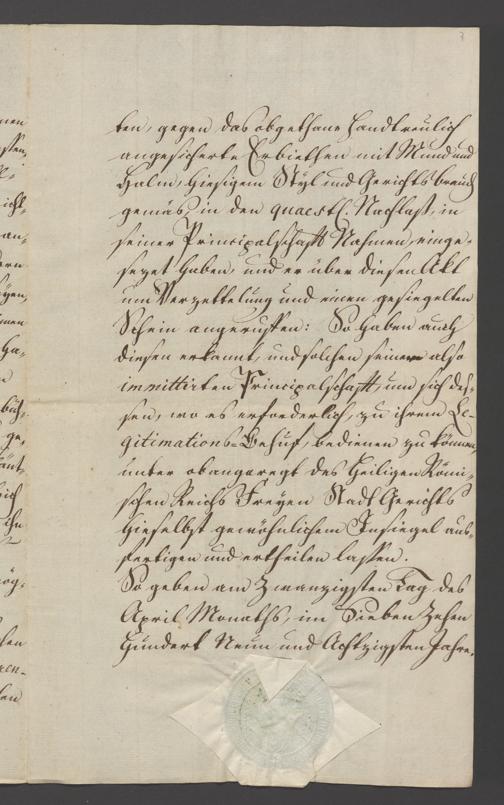 ten, gegen das abgethane handtreulich
angesicherte Erbiethen mit Mund und
Halm, hiesigem Styl und Gerichtsbrauch
gemäs, in den quaestl. Nachlaß, in
seiner Principalschafft Nahmen einge-
sezet haben, und er über diesen Akt
um Verzettelung und einen gesiegelten
Schein angeruffen: So haben auch
diesen erkannt, und solchen seinem also
immittirten Principalschafft, um sich des-
sen, wo es erforderlich, zu ihrem Le-
gitimations-Behuf, bedienen zu können,
unter obangeregt des Heiligen Römi-
schen Reichs Freyen Stadt Gerichts
hieselbst gewöhnlichem Insiegel aus-
fertigen und ertheilen lassen.
So geben am Zwanzigsten Tag des
April Monaths, im Sieben Zehen
Hundert Neun und Achtzigsten Jahre.